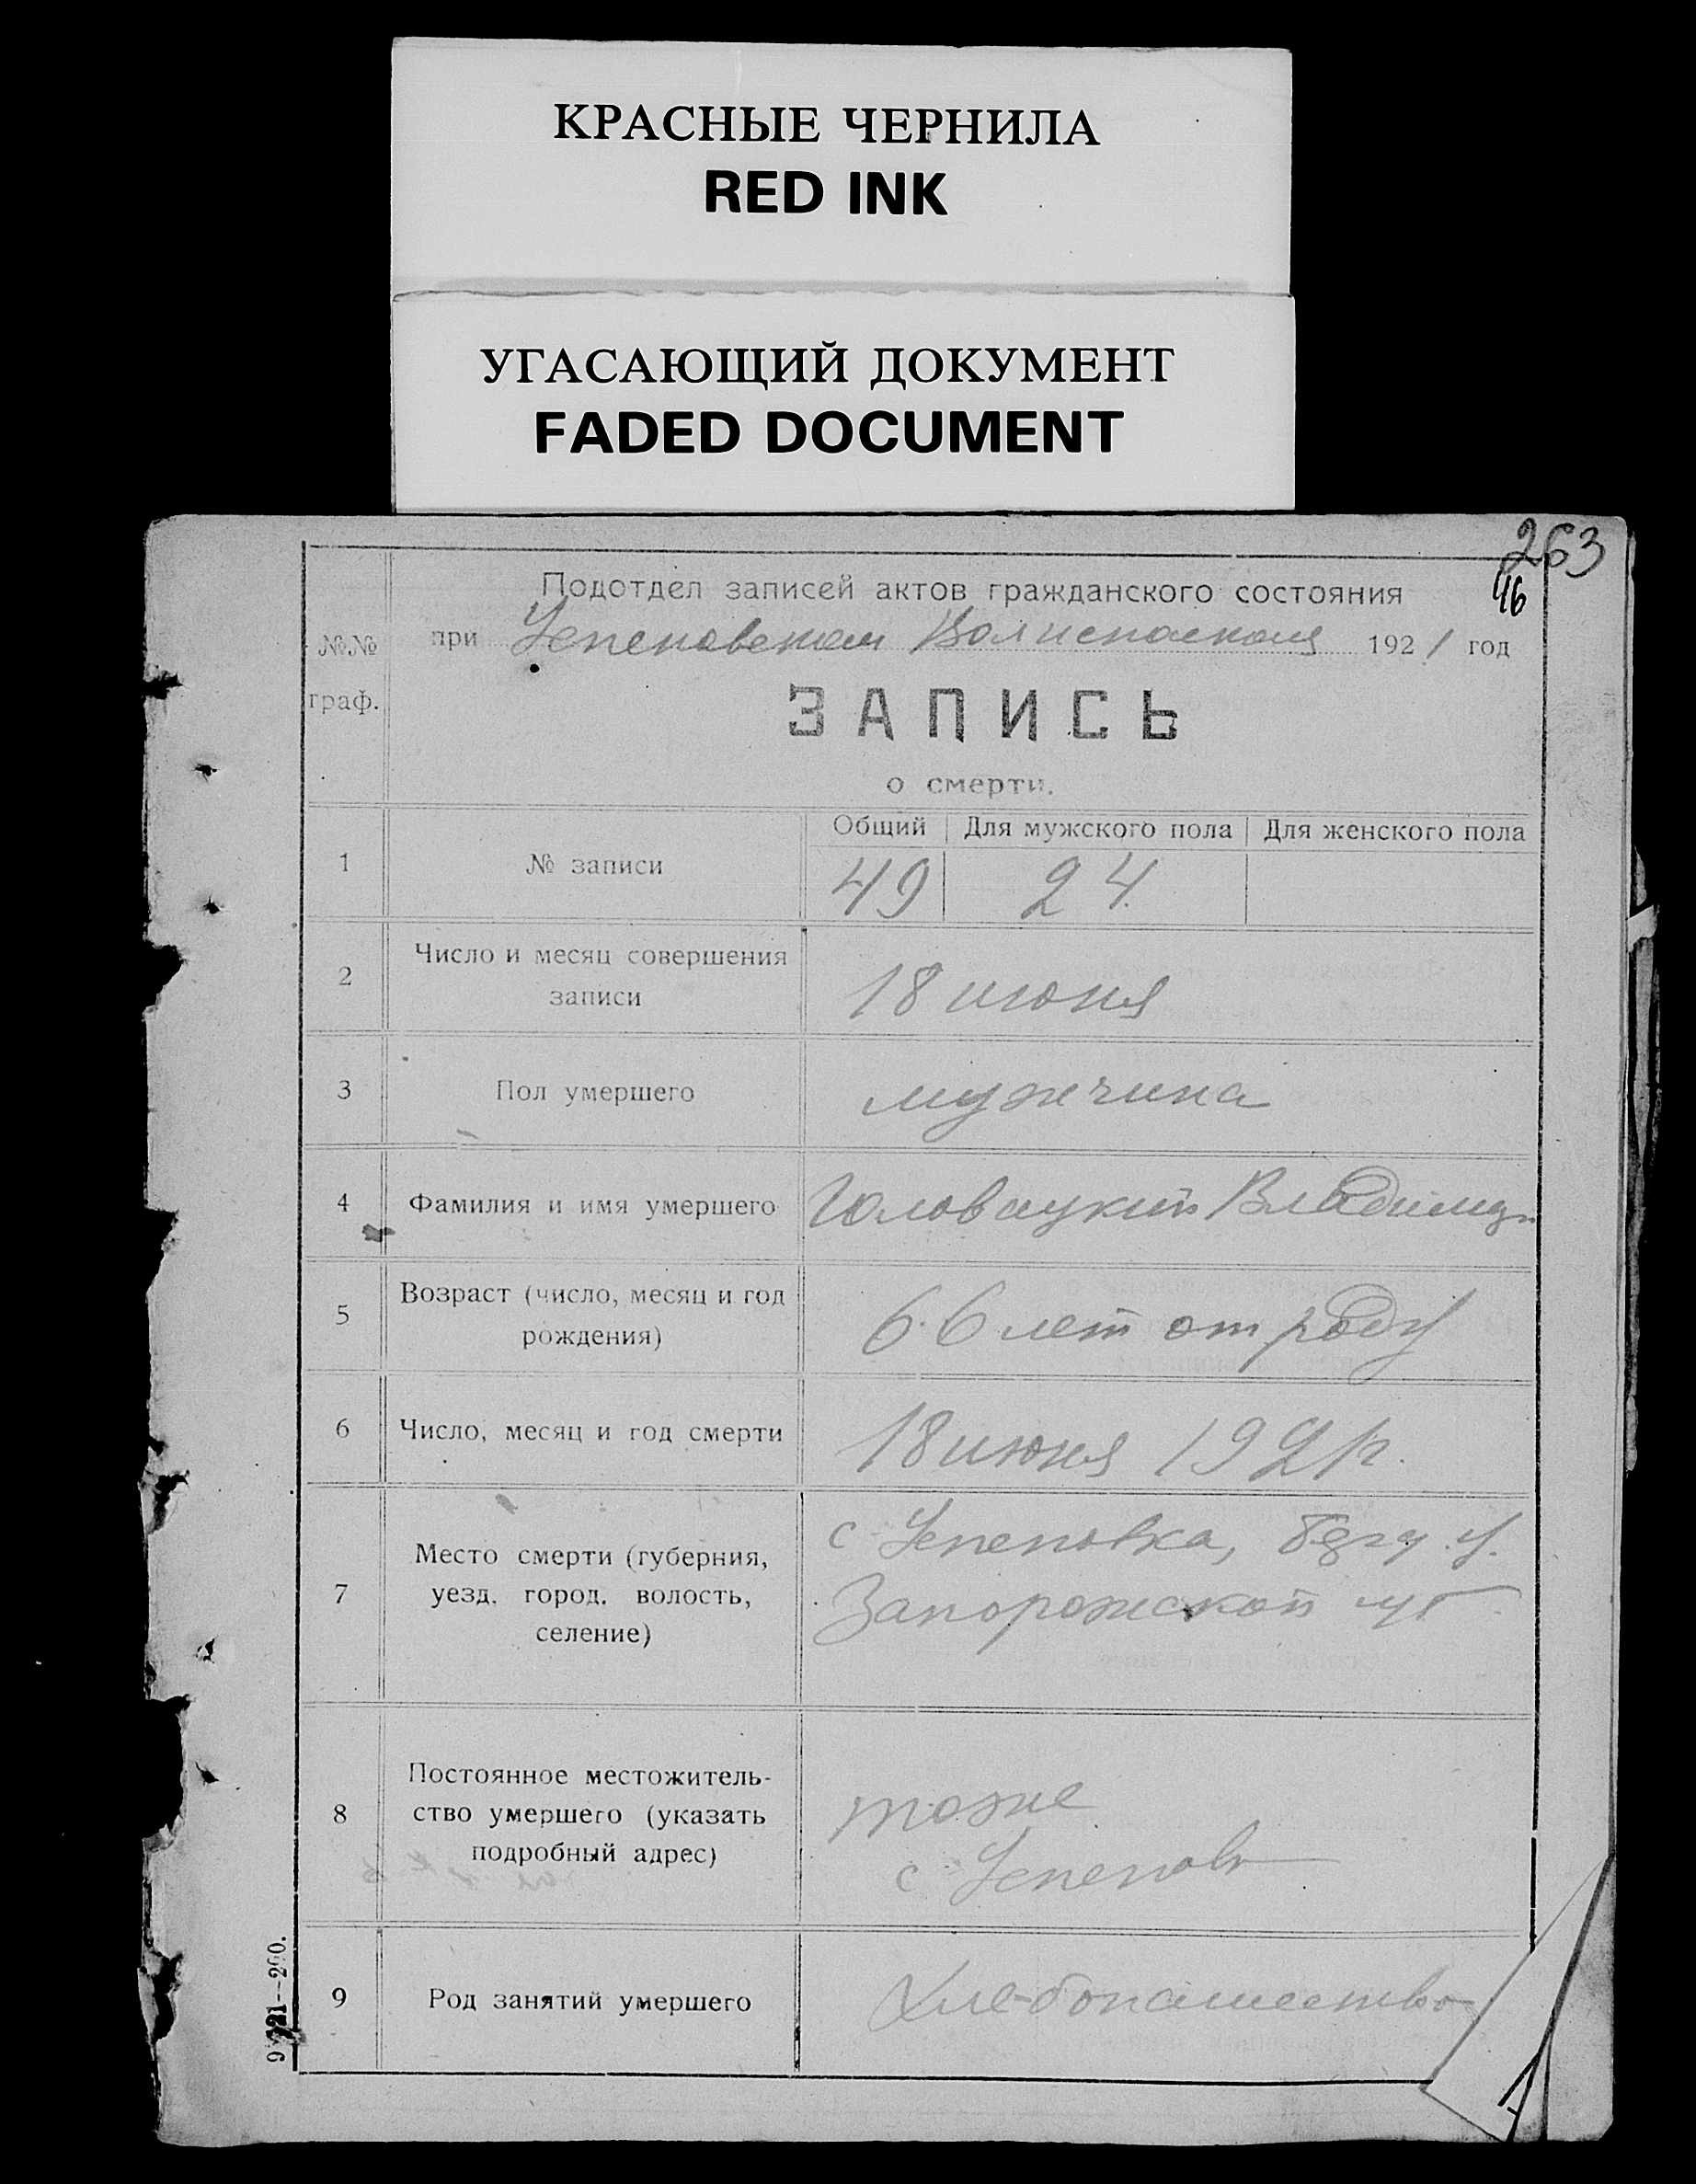 КРАСНЫЕ ЧЕРНИЛА
RED INK
УГАСАЮЩИЙ ДОКУМЕНТ
FADED DOCUMENT
263
46
Подотдел записей актов гражданского состояния
при 1921 год
№№ граф.
ЗАПИСЬ
о смерти.
Общий Для мужского пола Для женского пола
1 № записи 49 24.
2 Число и месяц совершения
записи 18 июня
3 Пол умершего мужчина
4 Фамилия и имя умершего Головацкий Владимир
5 Возраст (число, месяц и год
рождения) 66 лет от роду
6 Число, месяц и год смерти 18 июня 1921 г.
с
7 Место смерти (губерния,
уезд, город, волость,
селение)
Запорожской губ
8 Постоянное местожитель-
ство умершего (указать
подробный адрес)
тоже
с
9 Род занятий умершего Хлебопашество